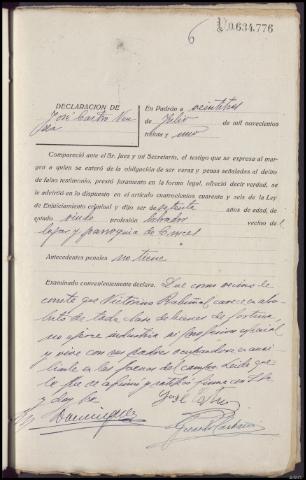 6
0.634.776
DECLARACION DE
José Castro
En Padrón a veintitres
de Julio de mil novecientos
treinta y uno
Compareció ante el Sr. Juez y mí Secretario, el testigo que se expresa al mar-
gen a quien se enteró de la obligación de ser veraz y penas señaladas al delito
de falso testimonio, prestó juramento en la forma legal, ofreció decir verdad, se
le advirtió lo dispuesto en el artículo cuatrocientos cuarenta y seis de la Ley
de Enjuiciamiento criminal y dijo ser de setenta años de edad, de
estado viudo profesión labrador vecino de
lugar y parroquia de Cruces
Antecedentes penales no tiene
Examinado convenientemente declara. Que como vecino le
consta que Victorino Rabuñal carece en abso-
luto de toda clase de bienes de fortuna,
no ejerce industria ni profesión especial
y vive con sus padres ocupandose
en las faenas del campo. Leida que
le fue se afirma y ratifica firma con S.S.
y doy fe.
José Castro
Dominguez